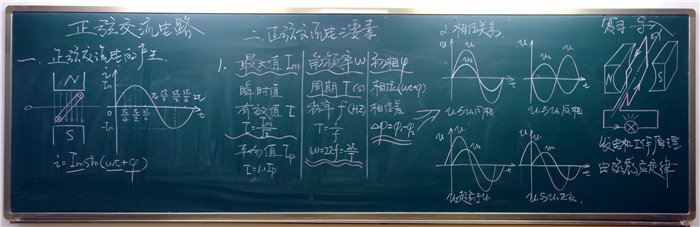 正弦交流电路
一、正弦交流电的产生
N
S
i
Im
0
-Im
t
i=Imsin(ωt+φ)
二、正弦交流电三要素
1.
最大值 Im
瞬时值
有效值 I
I=Im/√2
平均值 Ip
I=1.1Ip
角频率 ω
周期 T(s)
频率 f(Hz)
T=1/f
ω=2πf=2π/T
初相 φ
相位(ωt+φ)
相位差
Δφ=φ1-φ2
2.相位关系
u
u1
u2
t
u1与u2同相
u
u1
u2
t
u1与u2反相
u
u1
u2
t
u2超前于u1
u
u1
u2
t
u1与u2正交
N
S
发电机工作原理
电磁感应定律